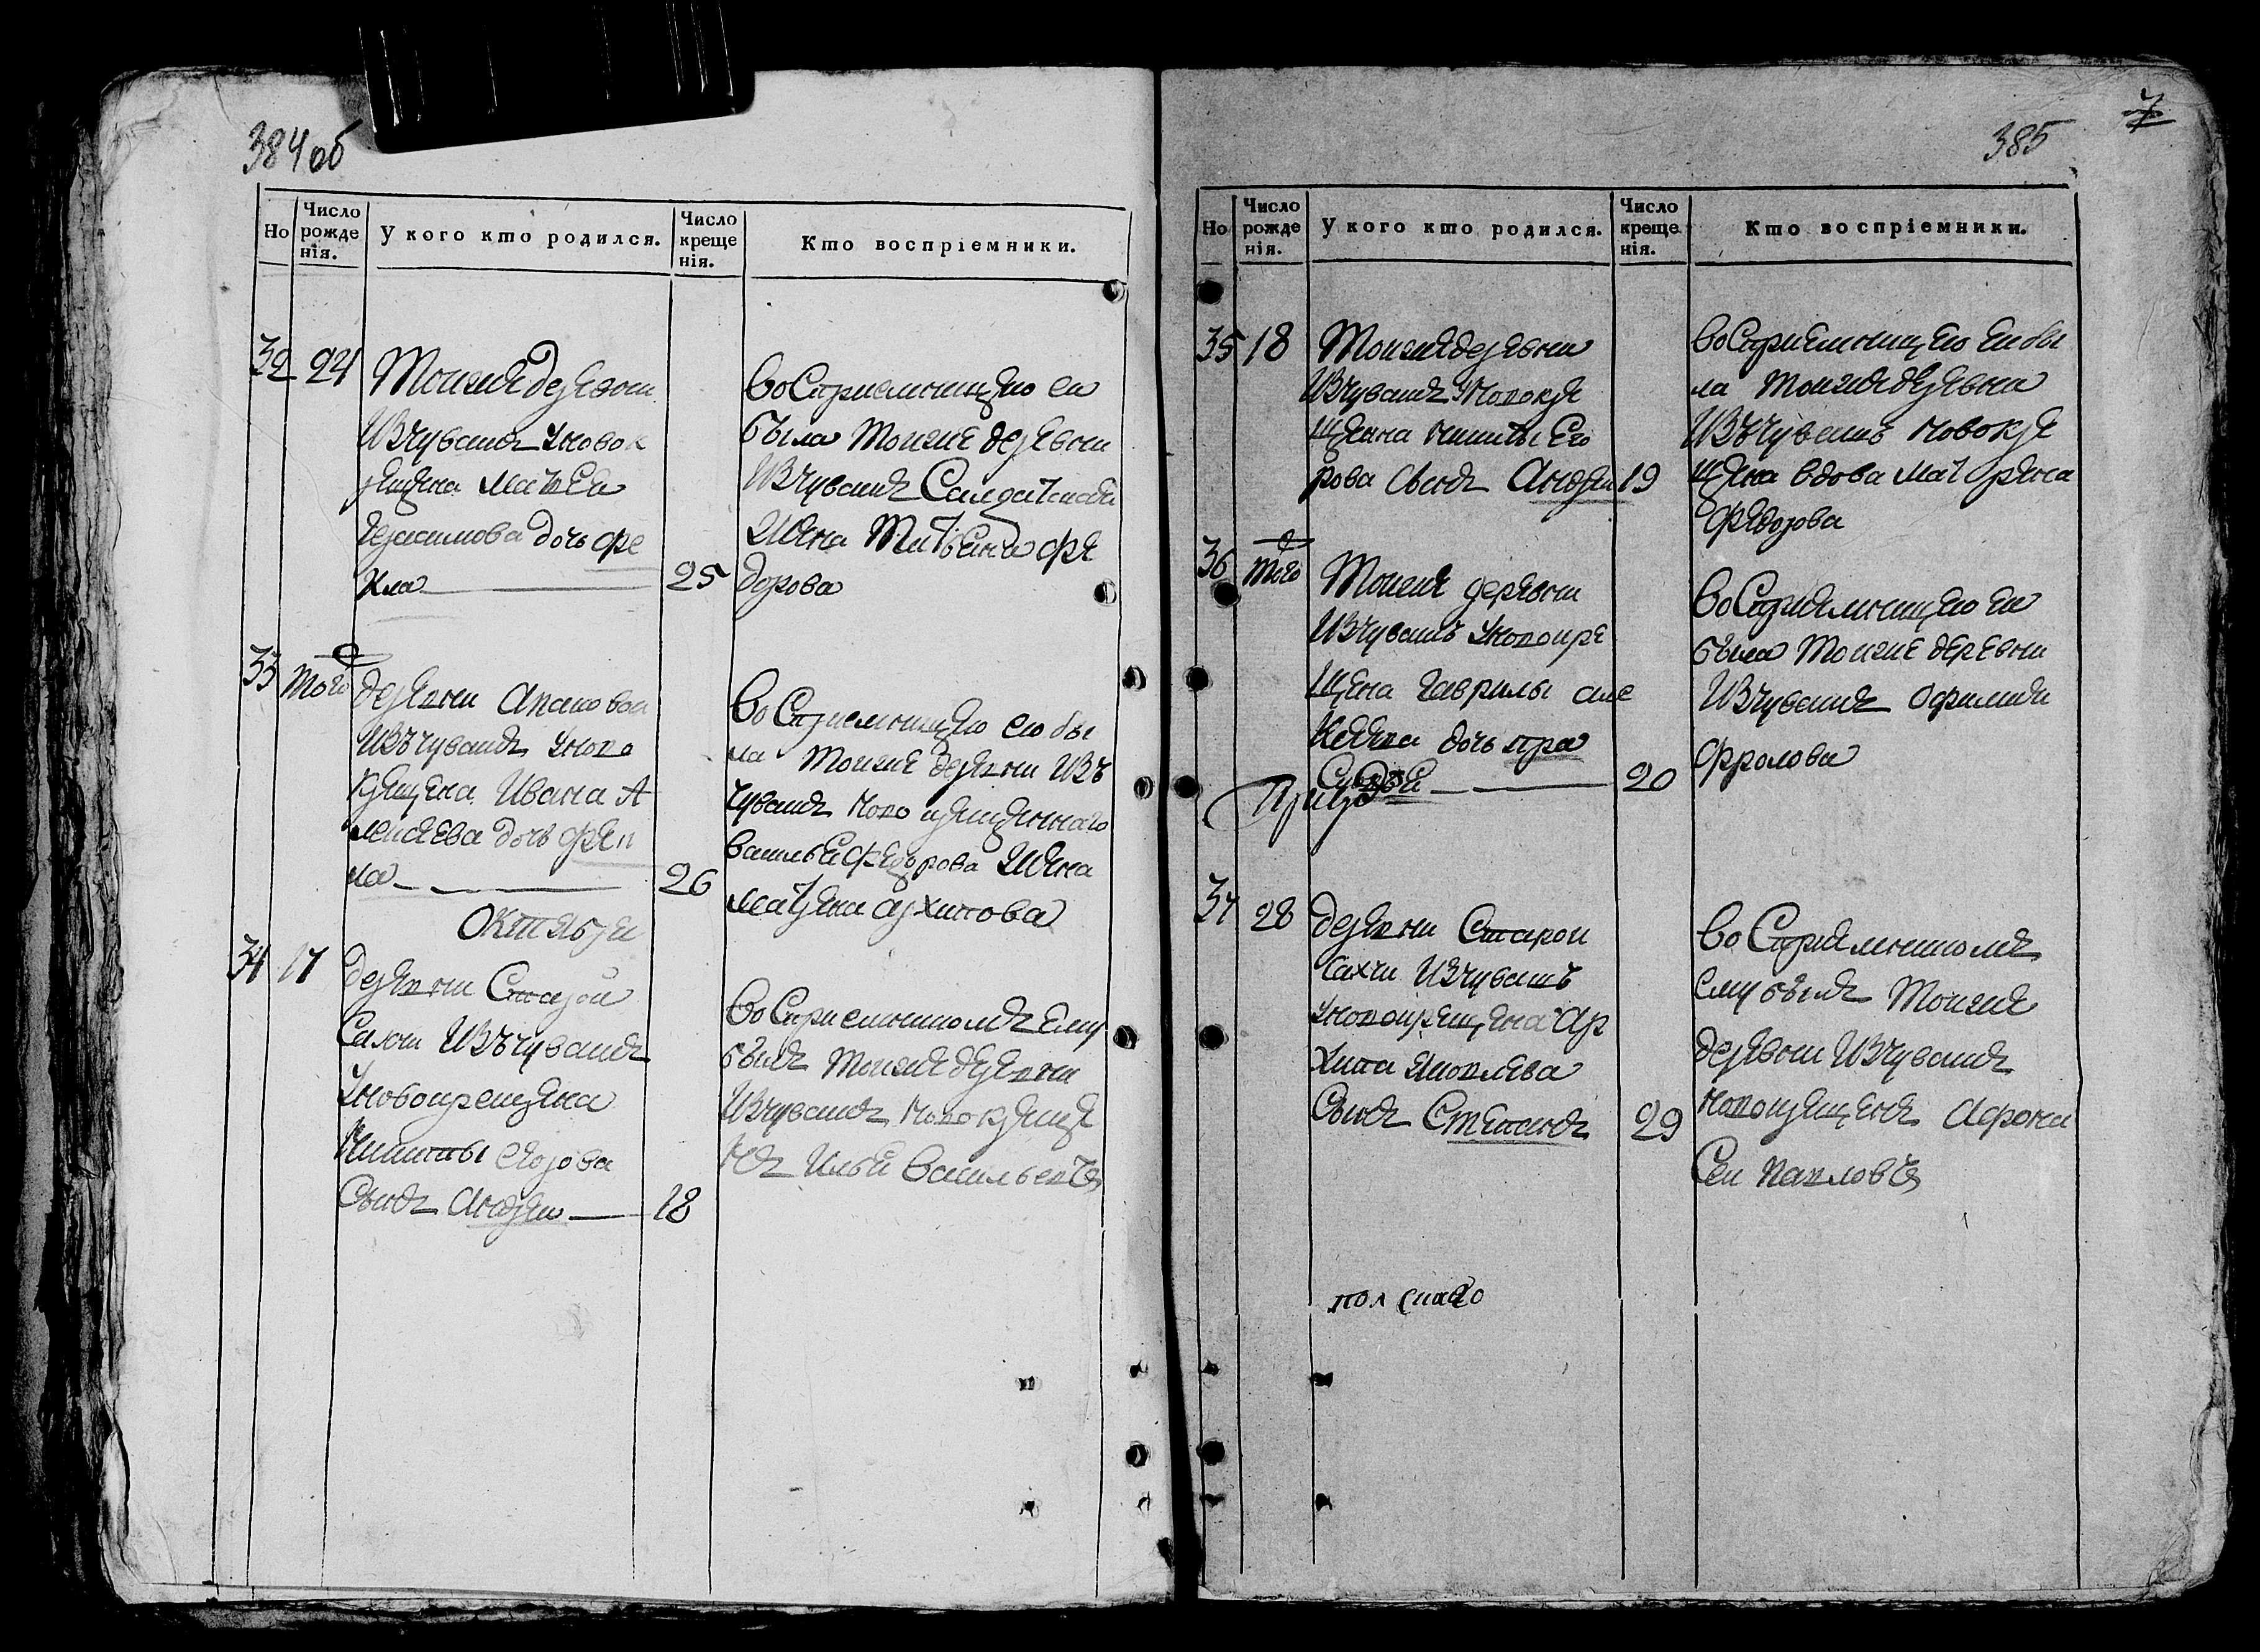 384 об
Но
Число рожденія.
У кого кто родился.
Число крещенія.
Кто воспріемники.
32
24
Тоиже деревни
Изчувашъ уновок
рещена Матвея
Герасимова дочь Фе
кла
25
Восприемницею еи
была тоиже деревни
Изчувашъ
жена Фе
дорова
33
того
деревни
Изъчувашъ уново
крещена Ивана А
лексеева дочь Фек
ла
26
Восприемницею ею бы
ла тоиже деревни Изъ
чувашъ новокрещеннаго
Василья Федорова жена
Матрена Архипова
Октября
34
17
деревни Старой
Изъчувашъ
уновокрещена
Никиты Егорова
Сынъ Андреи
18
Восприемникомъ ему
былъ тоиже деревни
Изчувашъ новокреще
нъ Илья Васильевъ
385
7
Но
Число рожденія.
У кого кто родился.
Число крещенія.
Кто воспріемники.
35
18
Тоиже деревни
Изчувашъ уновокре
щена Никиты Его
рова Сынъ Андреи
19
Восприемницею еи бы
ла тоиже деревни
Изъчувашъ новокре
щена вдова Матрена
Федорова
36
того
Тоиже деревни
Изчувашъ уновокре
щена Гаврилы Але
ксеева дочь Пра
сковья
20
Восприемницею еи
была тоиже деревни
Изчувашъ Офимия
Фролова
37
28
деревни Старои
Сахчи Изчувашъ
уновокрещена Ар
хипа Яковлева
Сынъ Степанъ
29
Восприемникомъ
ему былъ тоиже
деревни Изчувашъ
новокрещенъ Афона
сеи Павловъ